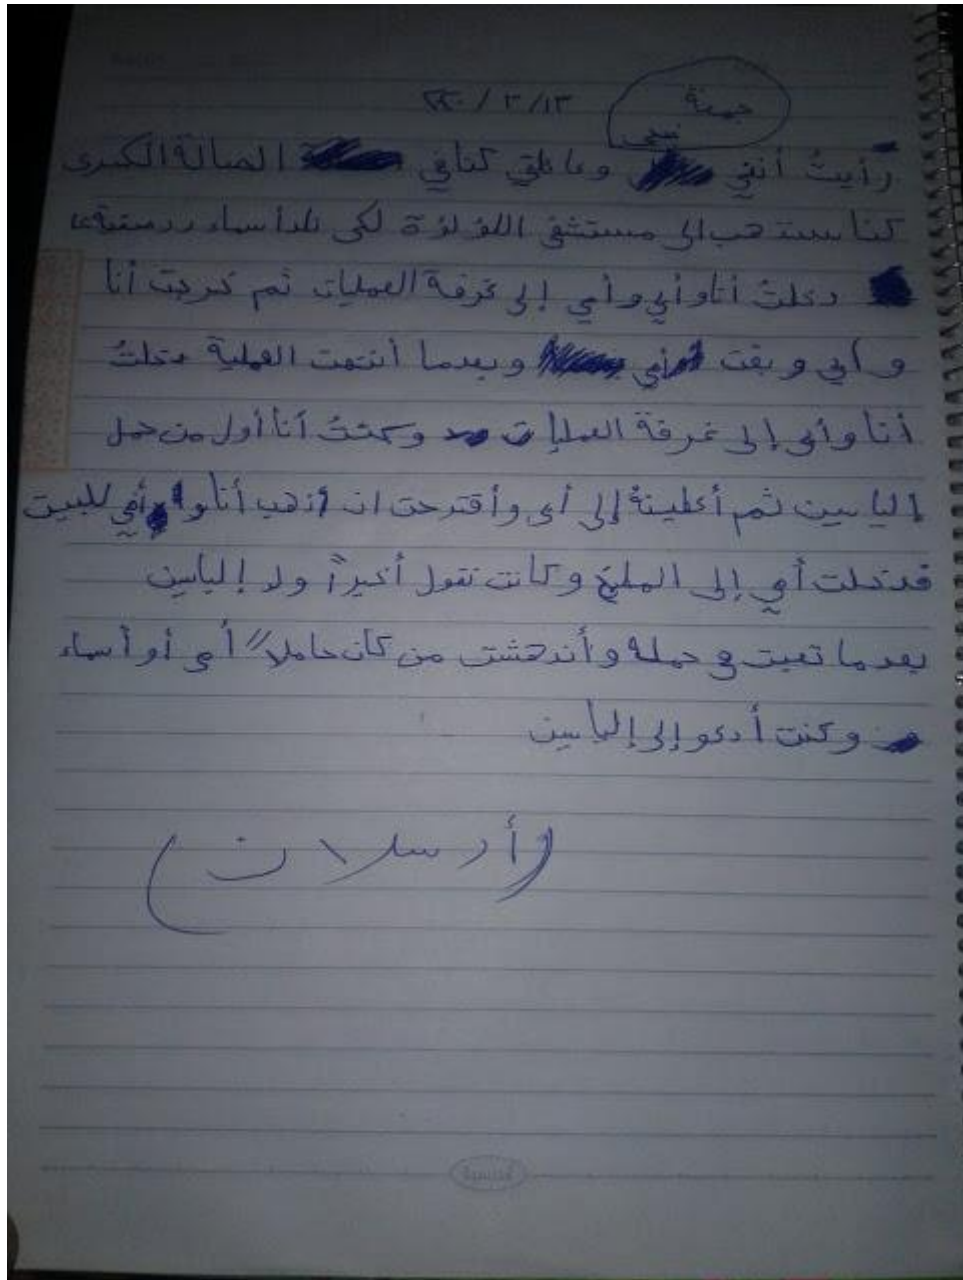 جمعة ١٣/٣/٢٠٢٠
ضحى
رأيتُ أنني وعائلتي كنا في الصالة الكبرى
كنا سنذهب إلى مستشفى اللؤلؤة لكي تلد أسماء
دخلتُ أنا وأبي وأمي إلى غرفة العمليات ثم خرجت أنا
و أبي و بقت أمي وبعدما أنتهت العملية دخلتُ
أنا وأبي إلى غرفة العمليات وكنتُ أنا أول من حمل
إلياسين ثم أعطيتهُ إلى أبي وأقترحت ان أذهب أنا و أمي للبيت
فدخلت أمي إلى المطبخ وكانت تقول أخيراً ولد إلياسين
بعدما تعبت في حمله وأندهشت من كان حاملاً أمي أو أسماء
وكنت أدعو إلى إلياسين
(أرسلان)